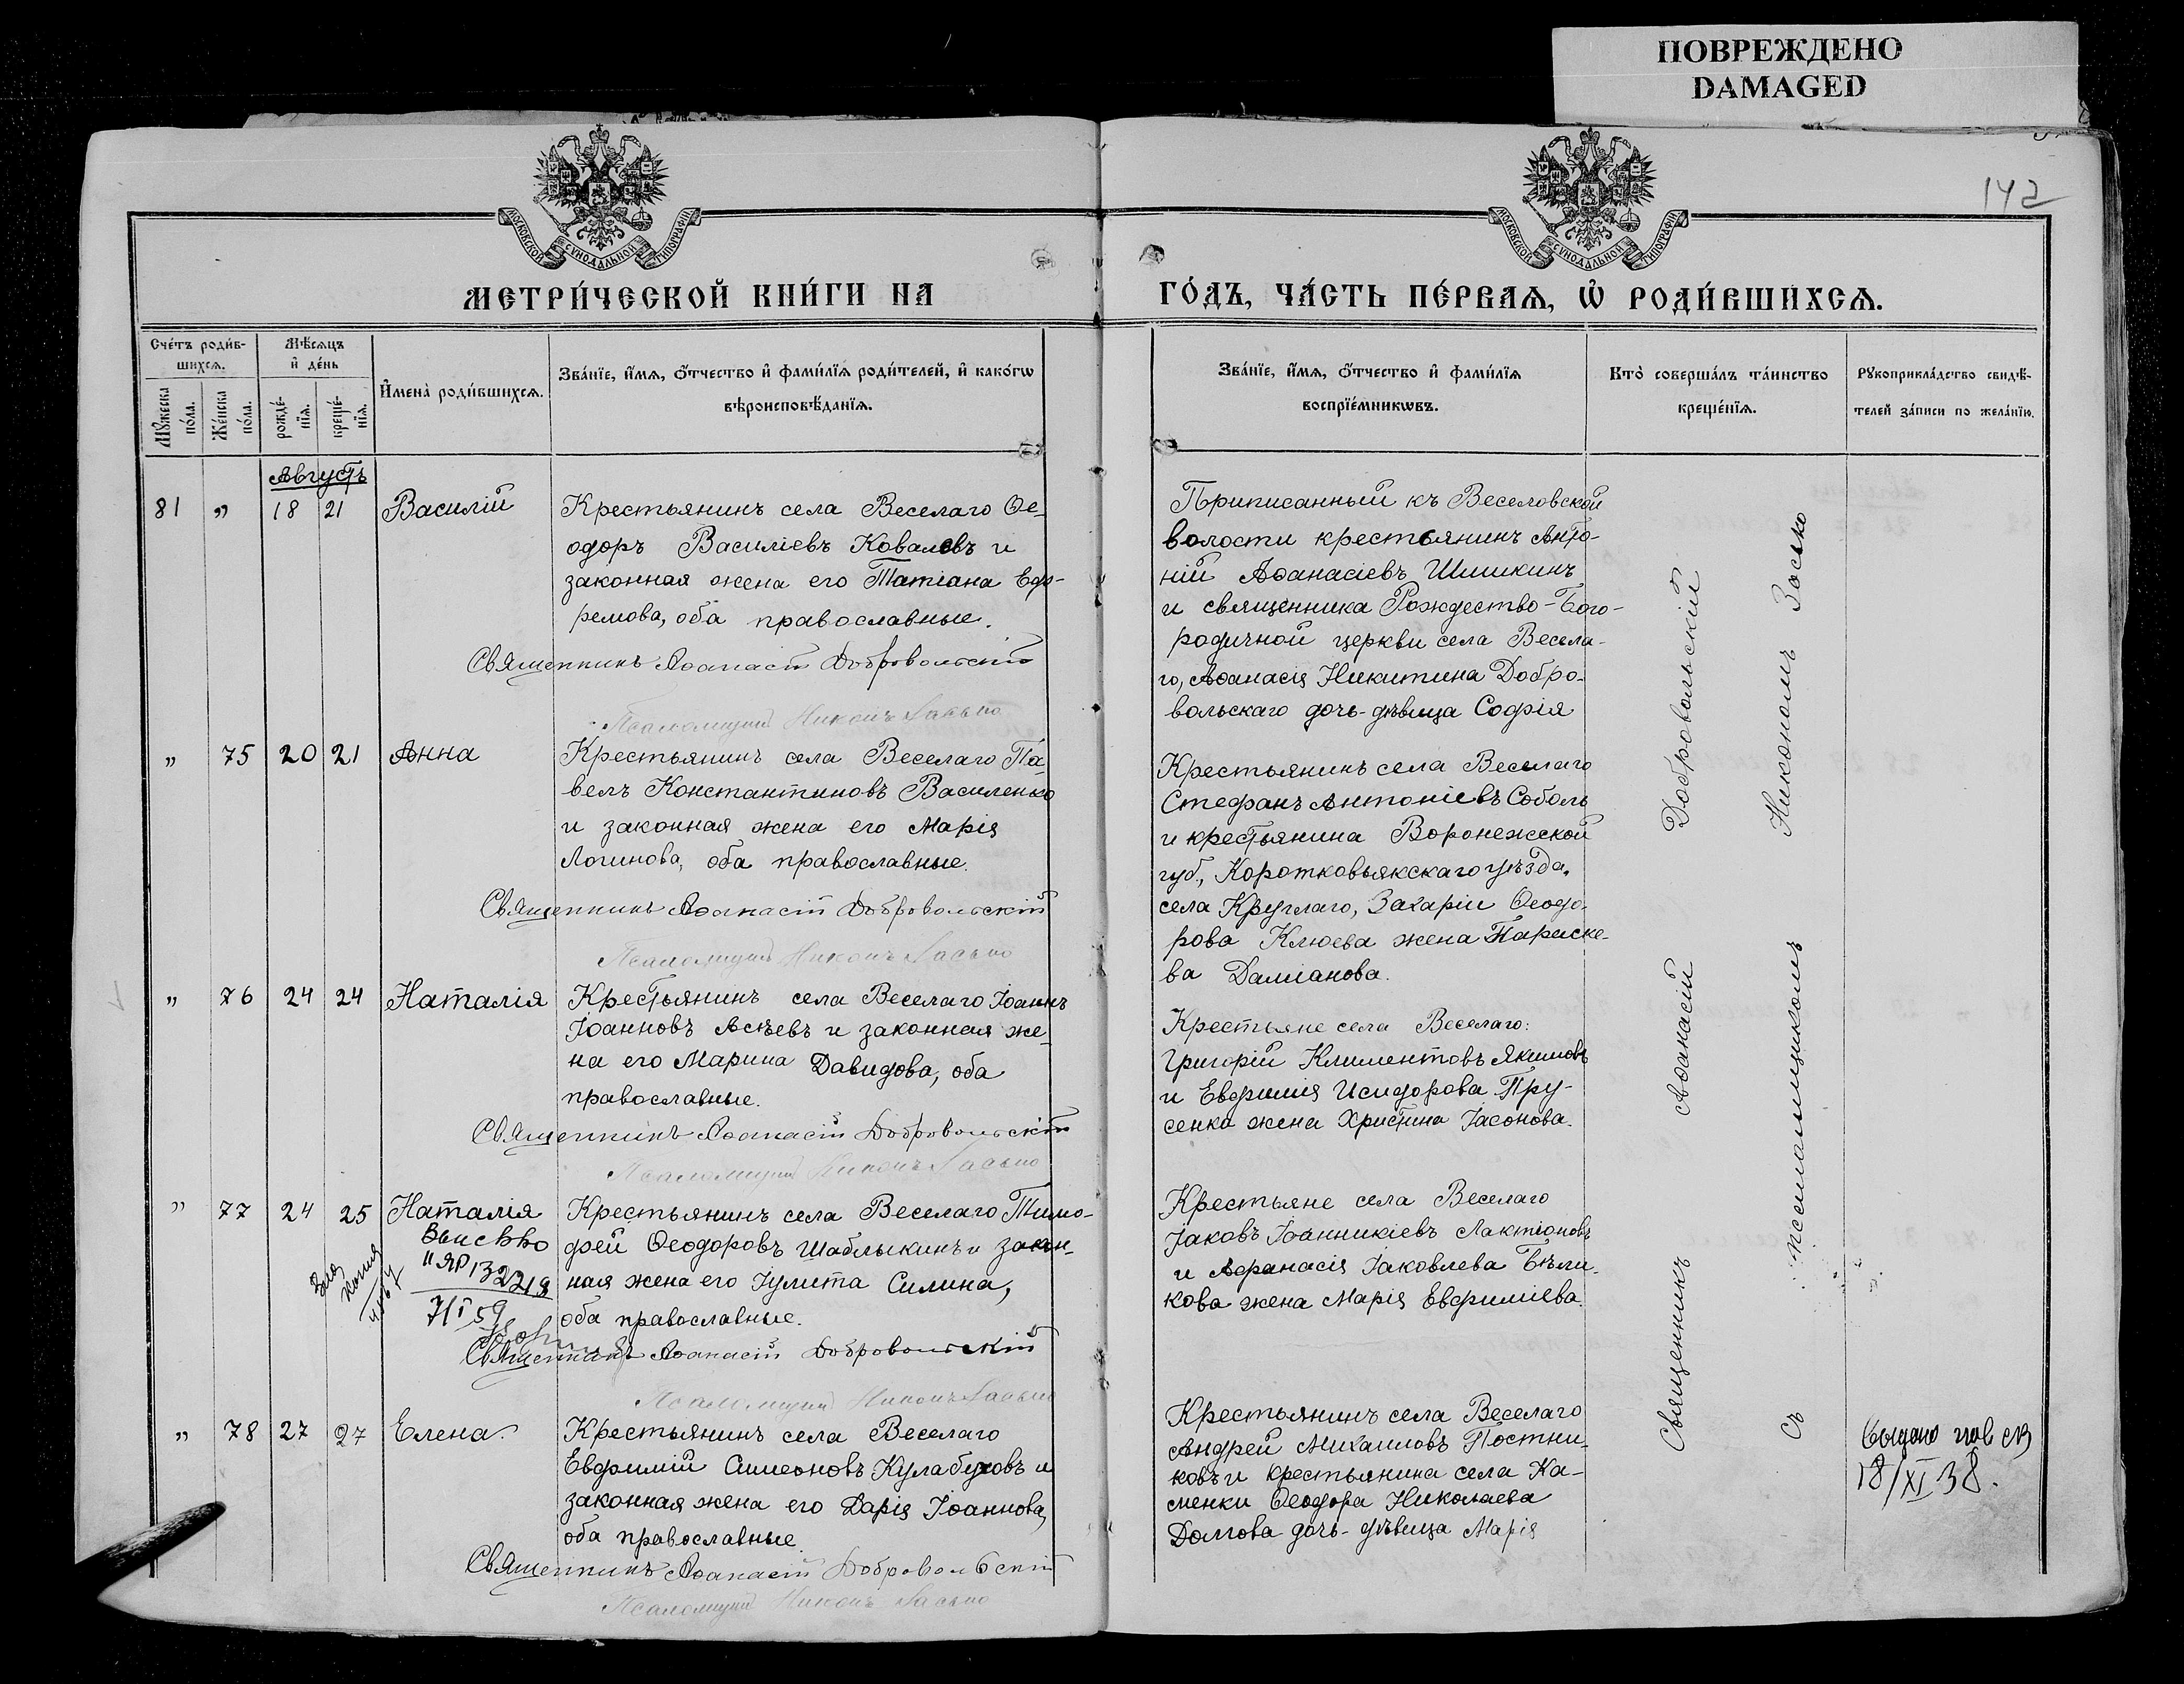 ПОВРЕЖДЕНО
DAMAGED
142
МОСКОВСКОЙ СѴНОДАЛЬНОЙ ТИПОГРАФІИ
МОСКОВСКОЙ СѴНОДАЛЬНОЙ ТИПОГРАФІИ
МЕТРИ́ЧЕСКОЙ КНИ́ГИ НА
ГО́ДЪ, ЧА́СТЬ ПЕ́РВАѦ, Ѽ РОДИ́ВШИХСѦ.
Сче́тъ роди́в-
шихсѧ.
Мꙋжеска по́ла.
Же́нска по́ла.
Мѣ́сѧцъ
и҆ де́нь
рожде́-
нїѧ.
креще́-
нїѧ.
И҆мена̀ роди́вшихсѧ.
Зва́нїе, и҆́мѧ, ѻ҆́тчество и҆ фами́лїѧ роди́телей, и҆ како́гѡ
вѣроисповѣ́данїѧ.
Зва́нїе, и҆́мѧ, ѻ҆́тчество и҆ фами́лїѧ
воспрїе́мникѡвъ.
Кто̀ соверша́лъ та́инство
креще́нїѧ.
Рꙋкоприкла́дство свидѣ́-
телей за́писи по жела́нїю.
Августъ
81 " 18 21 Василій
Крестьянинъ села Веселаго Ѳе-
одоръ Василіевъ Ковалевъ и
законная жена его Татіана Еф-
ремова, оба православные.
Священникъ Аѳанасій Добровольскій
Псаломщикъ Никонъ
Приписанный къ Веселовской
волости крестьянинъ Анто-
ній Аѳанасіевъ Шишкинъ
и священника Рождество-Бого-
родичной церкви села Весела-
го, Аѳанасія Никитина Добро-
вольскаго дочь-дѣвица Софія
" 75 20 21 Анна
Крестьянинъ села Веселаго Па-
велъ Константиновъ Василенко
и законная жена его Марія
Логинова, оба православные.
Священникъ Аѳанасій Добровольскій
Псаломщикъ Никонъ
Крестьянинъ села Веселаго
Стефанъ Антоніевъ Соболь
и крестьянина Воронежской
губ., Коротковьякскаго уѣзда,
села Круглаго, Захаріи Ѳеодо-
рова Клюева жена Параске-
ва Даміанова.
" 76 24 24 Наталія
Крестьянинъ села Веселаго Іоаннъ
Іоанновъ Асѣевъ и законная же-
на его Марина Давидова, оба
православные.
Священникъ Аѳанасій Добровольскій
Псаломщикъ Никонъ
Крестьяне села Веселаго:
Григорій Климентовъ Якимовъ
и Евфимія Исидорова Пру-
сенка жена Христина Іасонова.
" 77 24 25 Наталія
Крестьянинъ села Веселаго Тимо-
фей Ѳеодоровъ Шаблыкинъ и закон-
ная жена его Іулита Силина,
оба православные.
Священникъ Аѳанасій Добровольскій
Псаломщикъ Никонъ
копия
II ЯР 132218
7/I 59
Крестьяне села Веселаго
Іаковъ Іоанникіевъ Лактіоновъ
и Аѳанасія Іаковлева Бѣли-
кова жена Марія Евфиміева.
" 78 27 27 Елена.
Крестьянинъ села Веселаго
Евфимій Симеоновъ Кулабуховъ и
законная жена его Дарія Іоаннова,
оба православные.
Священникъ Аѳанасій Добровольскій
Псаломщикъ Никонъ
Крестьянинъ села Веселаго
Андрей Михаиловъ Постни-
ковъ и крестьянина села Ка-
менки Ѳеодора Николаева
Долгова дочь-дѣвица Марія
Священникъ Аѳанасій Добровольскій
съ псаломщикомъ Никономъ
Выдано
18/XI 38.